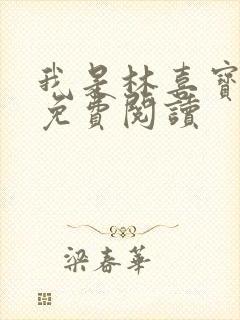 我是林喜寶
免費閱讀
梁春華